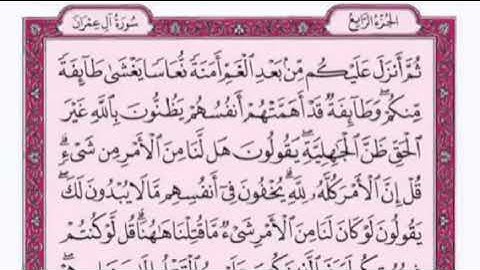 الجزء الرابع
سورة آل عمران
ثُمَّ أَنزَلَ عَلَيْكُم مِّنۢ بَعْدِ ٱلْغَمِّ أَمَنَةً نُّعَاسًا يَغْشَىٰ طَآئِفَةً
مِّنكُمْ ۖ وَطَآئِفَةٌ قَدْ أَهَمَّتْهُمْ أَنفُسُهُمْ يَظُنُّونَ بِٱللَّهِ غَيْرَ
ٱلْحَقِّ ظَنَّ ٱلْجَٰهِلِيَّةِ ۖ يَقُولُونَ هَل لَّنَا مِنَ ٱلْأَمْرِ مِن شَىْءٍ ۗ
قُلْ إِنَّ ٱلْأَمْرَ كُلَّهُۥ لِلَّهِ ۗ يُخْفُونَ فِىٓ أَنفُسِهِم مَّا لَا يُبْدُونَ لَكَ ۖ
يَقُولُونَ لَوْ كَانَ لَنَا مِنَ ٱلْأَمْرِ شَىْءٌ مَّا قُتِلْنَا هَٰهُنَا ۗ قُل لَّوْ كُنتُمْ